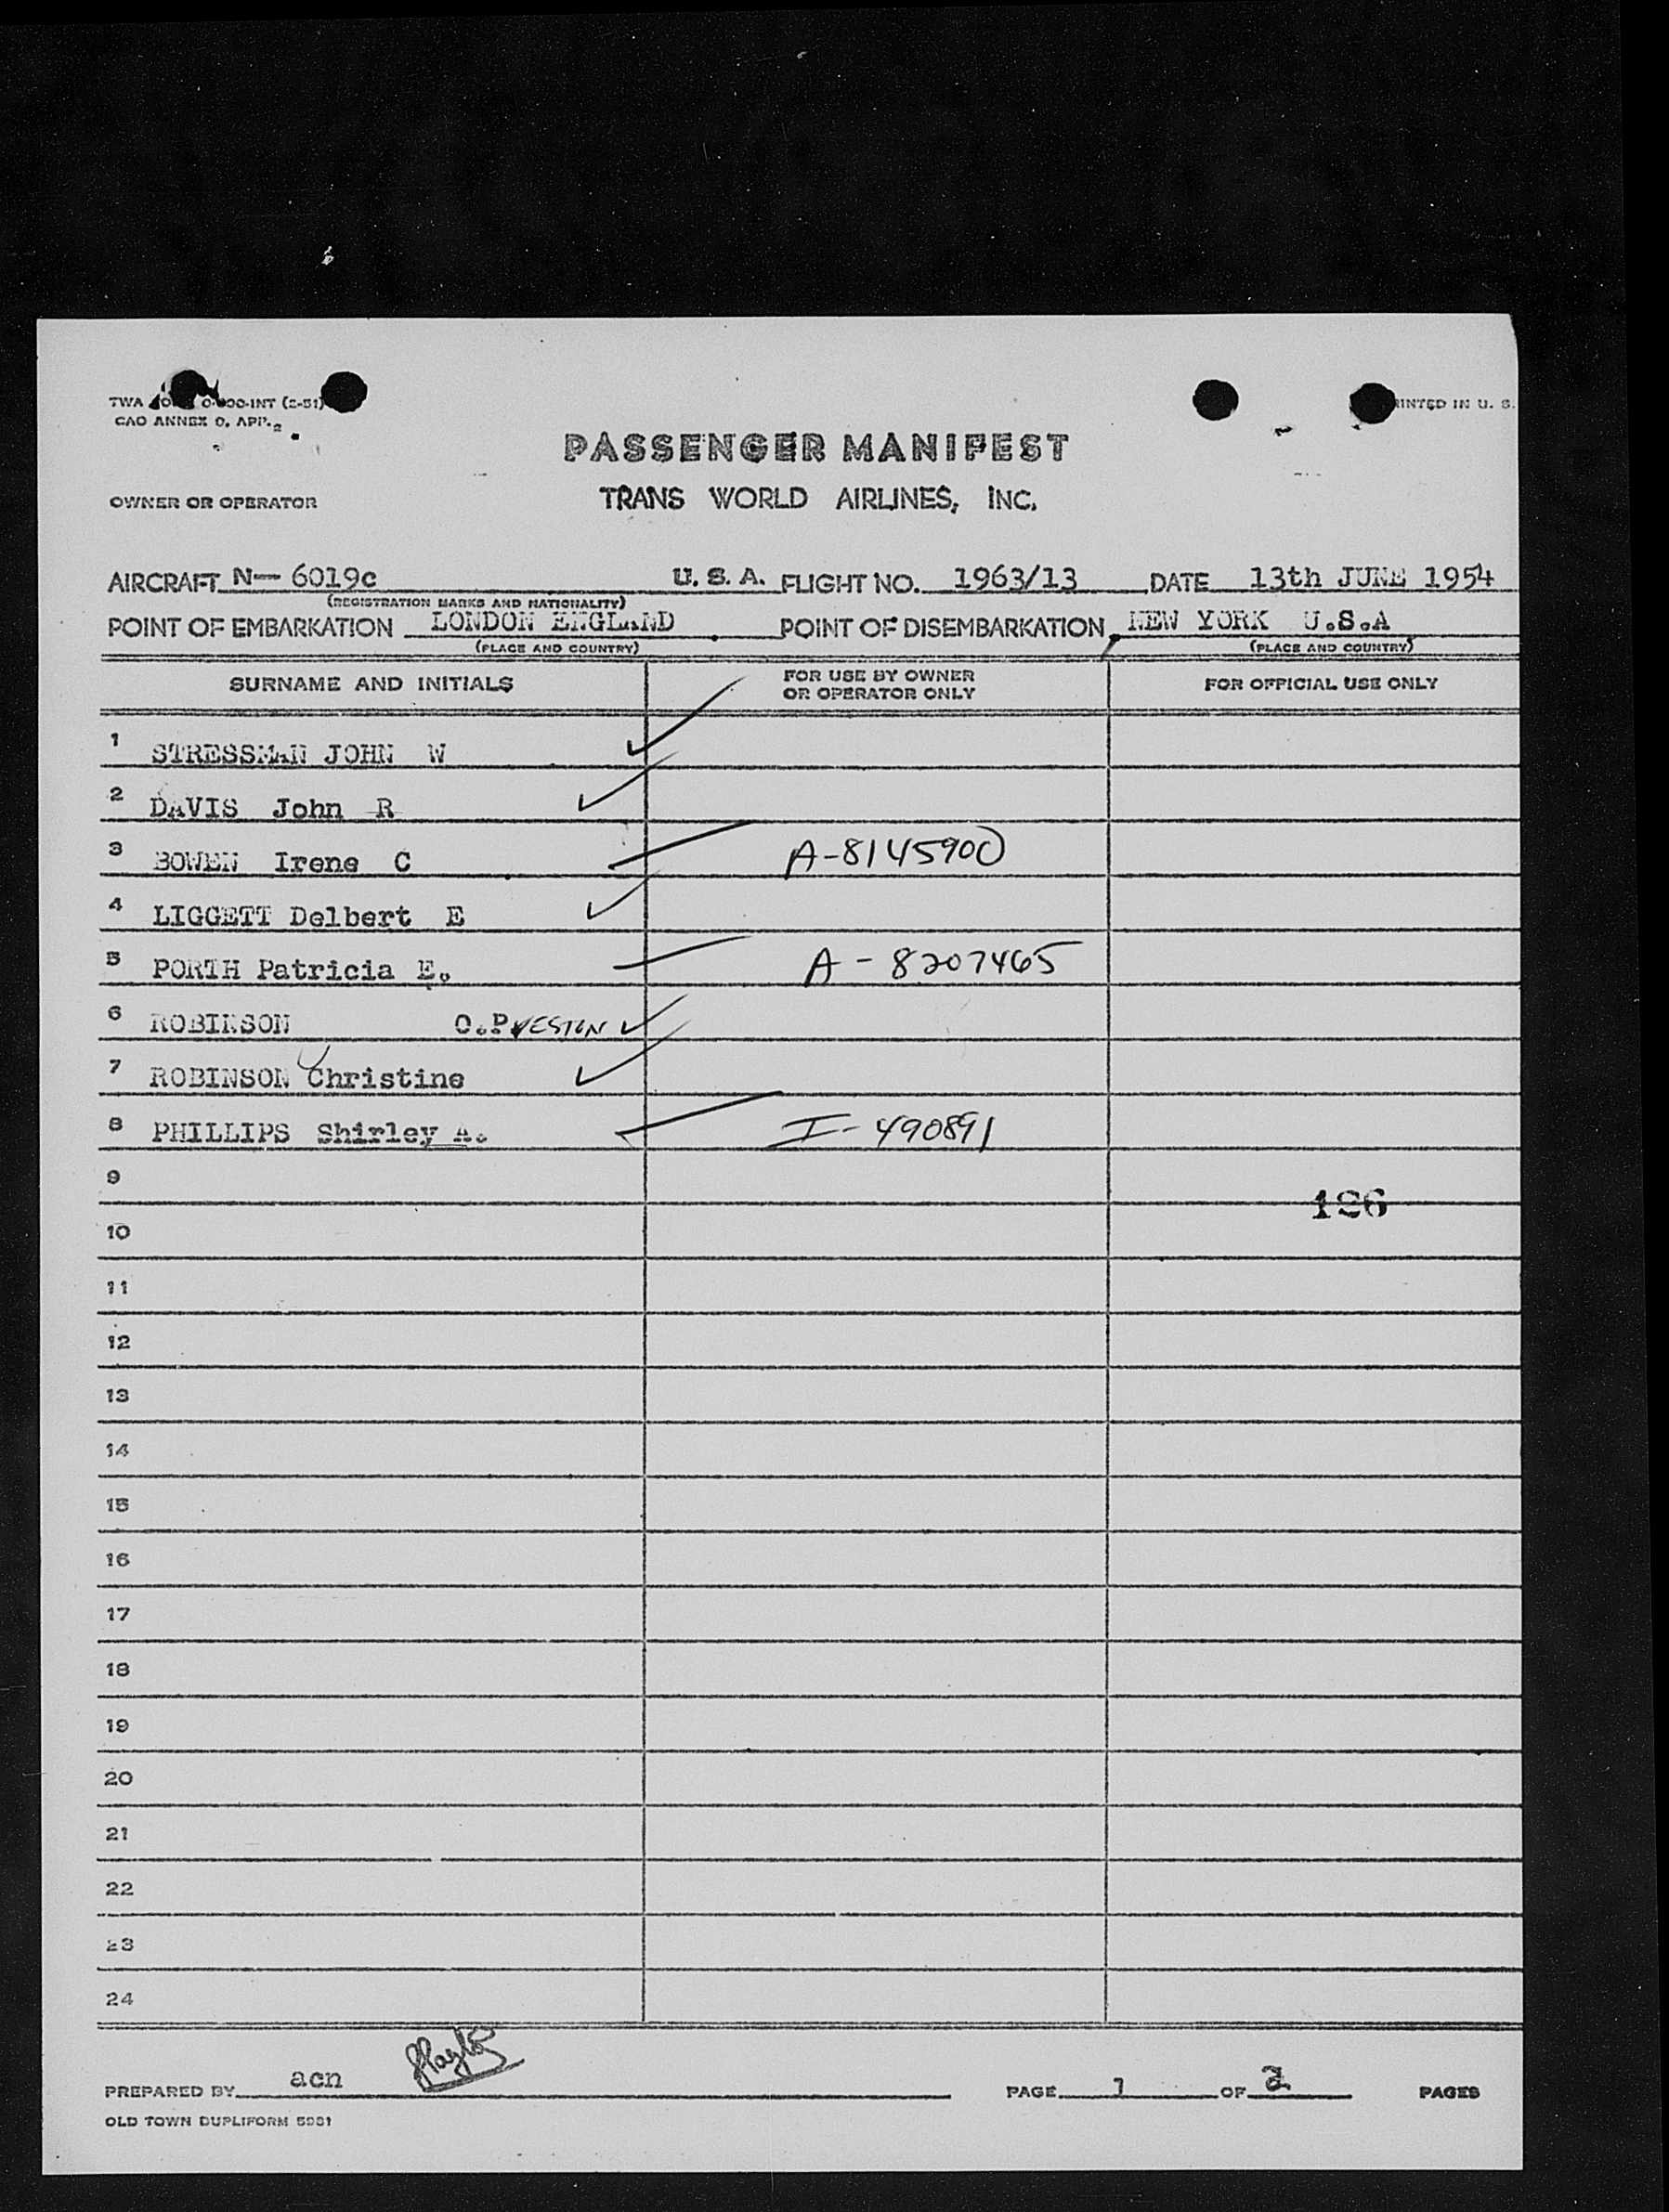 TWA O-INT (2-51)
CAO ANNEX 9, APP. 2
PRINTED IN U. S.
PASSENGER MANIFEST
OWNER OR OPERATOR TRANS WORLD AIRLINES, INC.
AIRCRAFT N— 6019c U. S. A. FLIGHT NO. 1963/13 DATE 13th JUNE 1954
(REGISTRATION MARKS AND NATIONALITY)
POINT OF EMBARKATION LONDON ENGLAND POINT OF DISEMBARKATION NEW YORK U.S.A
(PLACE AND COUNTRY) (PLACE AND COUNTRY)
SURNAME AND INITIALS FOR USE BY OWNER OR OPERATOR ONLY FOR OFFICIAL USE ONLY
1 STRESSMAN JOHN W
2 DAVIS John R
3 BOWEN Irene C A-8145900
4 LIGGETT Delbert E
5 PORTH Patricia E. A-8207465
6 ROBINSON O.PRESTON
7 ROBINSON Christine
8 PHILLIPS Shirley A. I-490891
9
126
10
11
12
13
14
15
16
17
18
19
20
21
22
23
24
PREPARED BY acn PAGE 1 OF 2 PAGES
OLD TOWN DUPLIFORM 5981